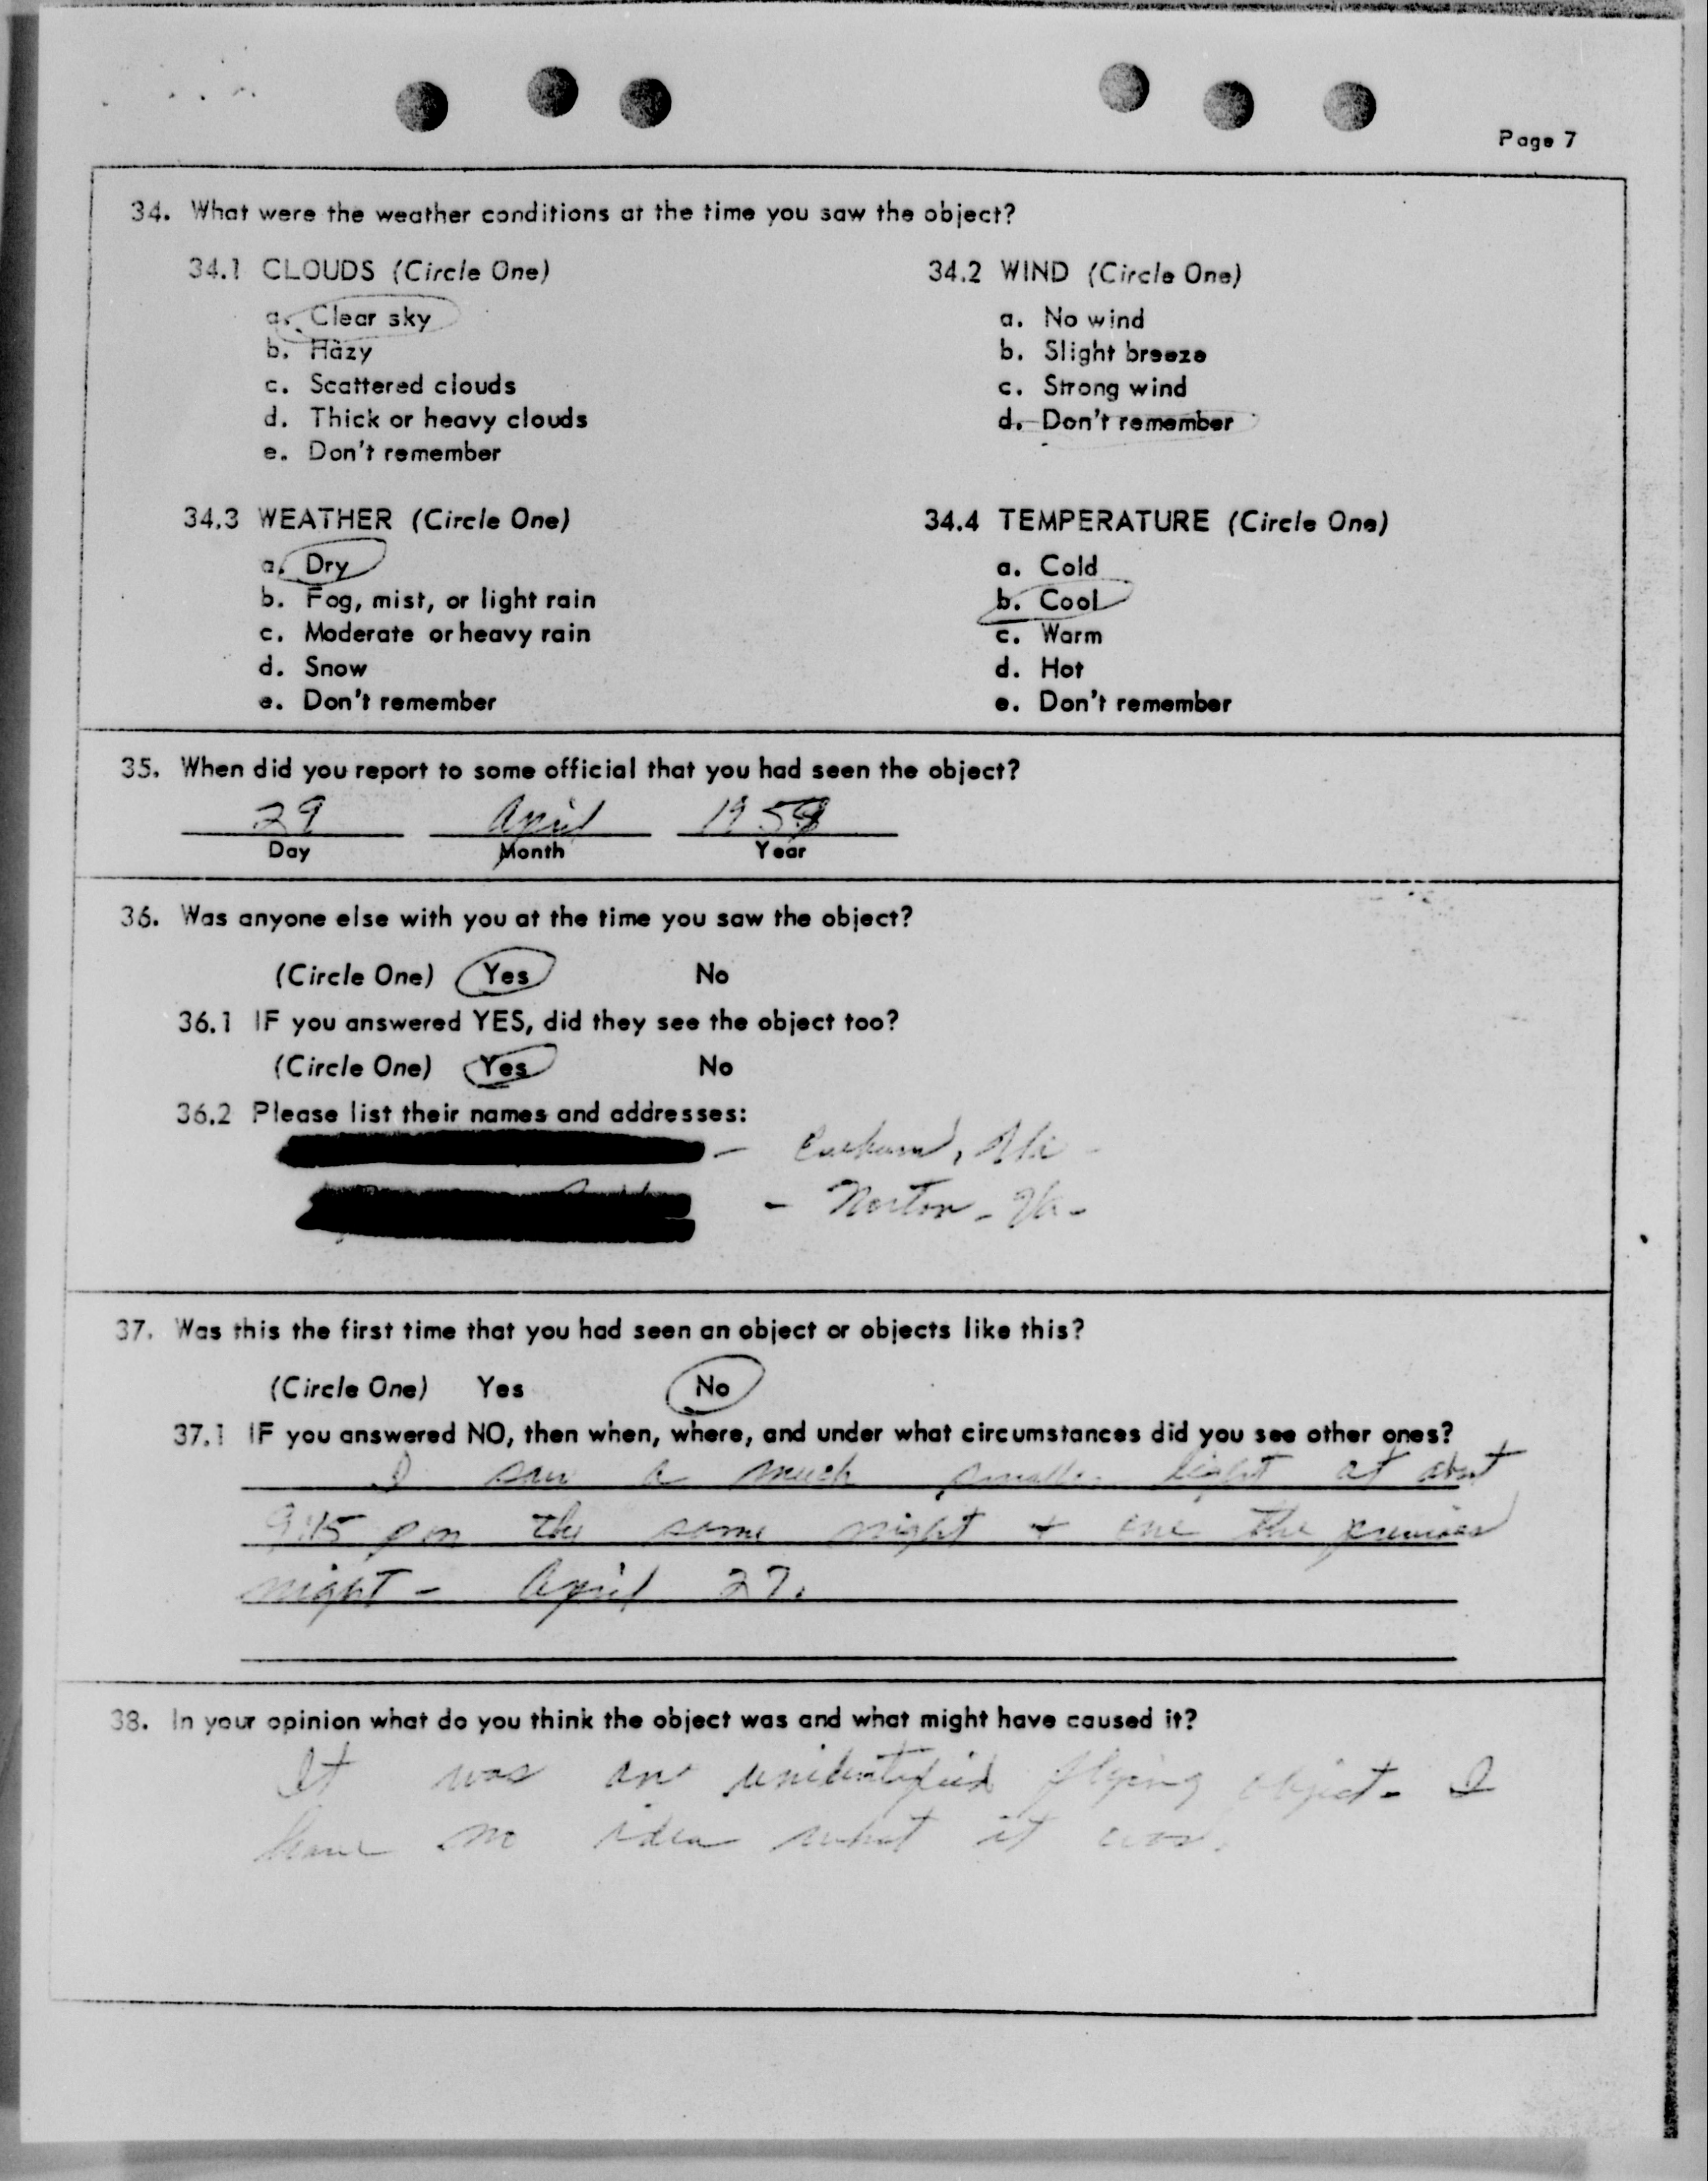 Page 7
34. What were the weather conditions at the time you saw the object?
34.1 CLOUDS (Circle One)
a. Clear sky
b. Hazy
c. Scattered clouds
d. Thick or heavy clouds
e. Don't remember
34.2 WIND (Circle One)
a. No wind
b. Slight breeze
c. Strong wind
d. Don't remember
34.3 WEATHER (Circle One)
a. Dry
b. Fog, mist, or light rain
c. Moderate or heavy rain
d. Snow
e. Don't remember
34.4 TEMPERATURE (Circle One)
a. Cold
b. Cool
c. Warm
d. Hot
e. Don't remember
35. When did you report to some official that you had seen the object?
29 April
Day Month Year
36. Was anyone else with you at the time you saw the object?
(Circle One) Yes No
36.1 IF you answered YES, did they see the object too?
(Circle One) Yes No
36.2 Please list their names and addresses:
- Va -
- Norton - Va -
37. Was this the first time that you had seen an object or objects like this?
(Circle One) Yes No
37.1 IF you answered NO, then when, where, and under what circumstances did you see other ones?
I saw a much smaller light at about
9:15 pm the same night + one the previous
night - April 27.
38. In your opinion what do you think the object was and what might have caused it?
It was an unidentified flying object - I
have no idea what it was.